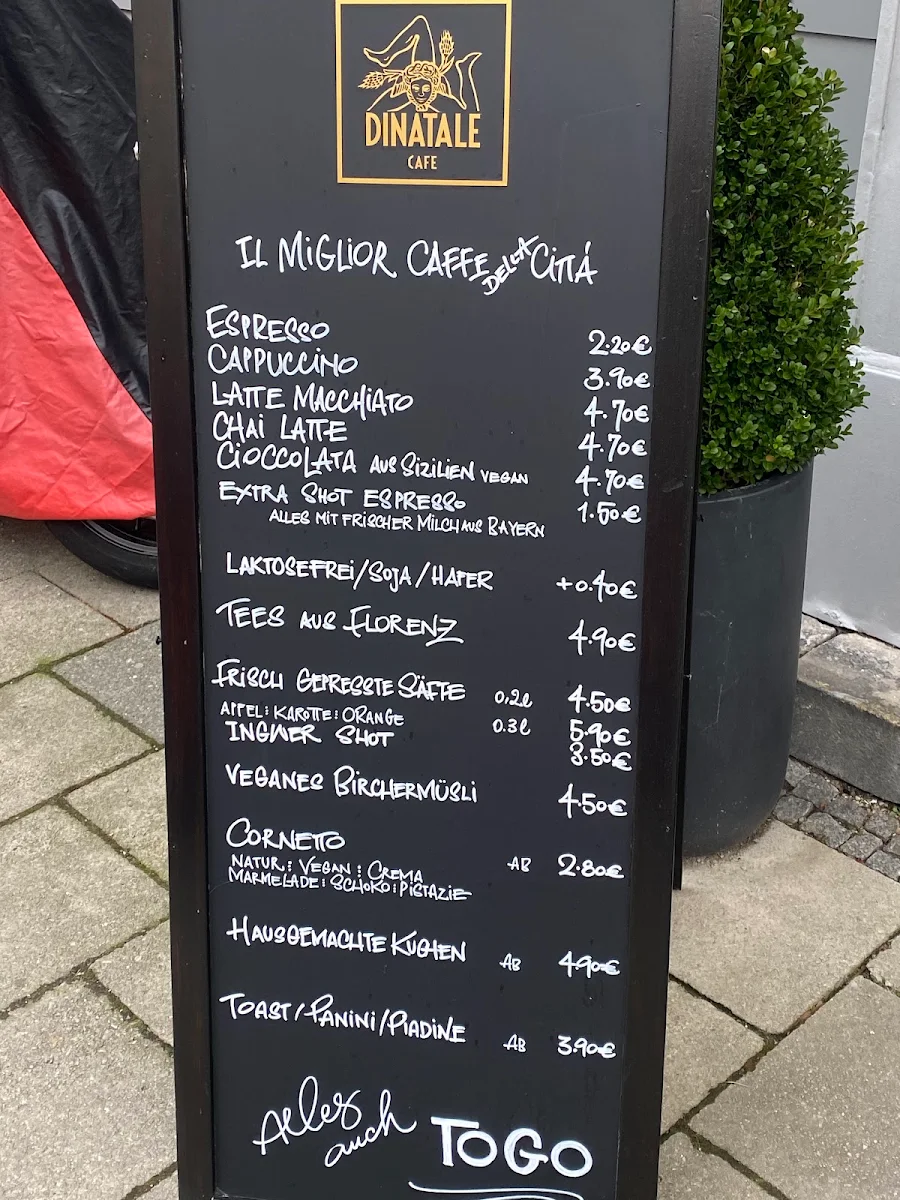 DINATALE
CAFE
IL MIGLIOR CAFFE DELLA CITTÁ
ESPRESSO 2.20€
CAPPUCCINO 3.90€
LATTE MACCHIATO 4.70€
CHAI LATTE 4.70€
CIOCCOLATA AUS SIZILIEN VEGAN 4.70€
EXTRA SHOT ESPRESSO 1.50€
ALLES MIT FRISCHER MILCH AUS BAYERN
LAKTOSEFREI/SOJA/HAFER +0.40€
TEES AUS FLORENZ 4.90€
FRISCH GEPRESSTE SÄFTE 0,2l 4.50€
APFEL: KAROTTE: ORANGE 0.3l 5.90€
INGWER SHOT 3.50€
VEGANES BIRCHERMÜSLI 4.50€
CORNETTO AB 2.80€
NATUR: VEGAN: CREMA
MARMELADE: SCHOKO: PISTAZIE
HAUSGEMACHTE KUCHEN AB 4.90€
TOAST/PANINI/PIADINE AB 3.90€
Alles auch TO GO